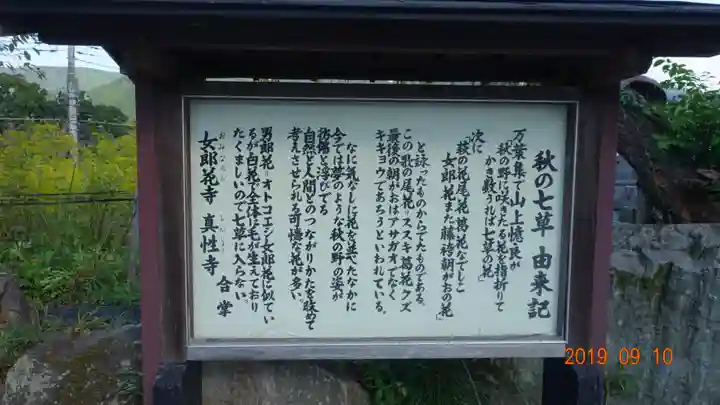 秋の七草 由来記
万葉集で山ノ上憶良が
「秋の野に咲きたる花を指折りて
かき数うれば七草の花」
次に
「萩の花尾花葛花なでしこ
女郎花また藤袴朝がおの花」
と詠ったものからでたものである。
この歌の尾花はススキ葛花はクズ
最後の朝がおはアサガオでなく
キキョウであろうといわれている。
なに気なしに花を並べたなかに
今では夢のような秋の野の姿が
彷彿と浮びでる
自然と人間とのつながりかたを改めて
考えさせられる可憐な花が多い。
男郎花=オトコエシ女郎花に似てい
るが白花で全体に毛が生えており
たくましいので七草に入らない。
女郎花寺 真性寺
合掌
2019 09 10